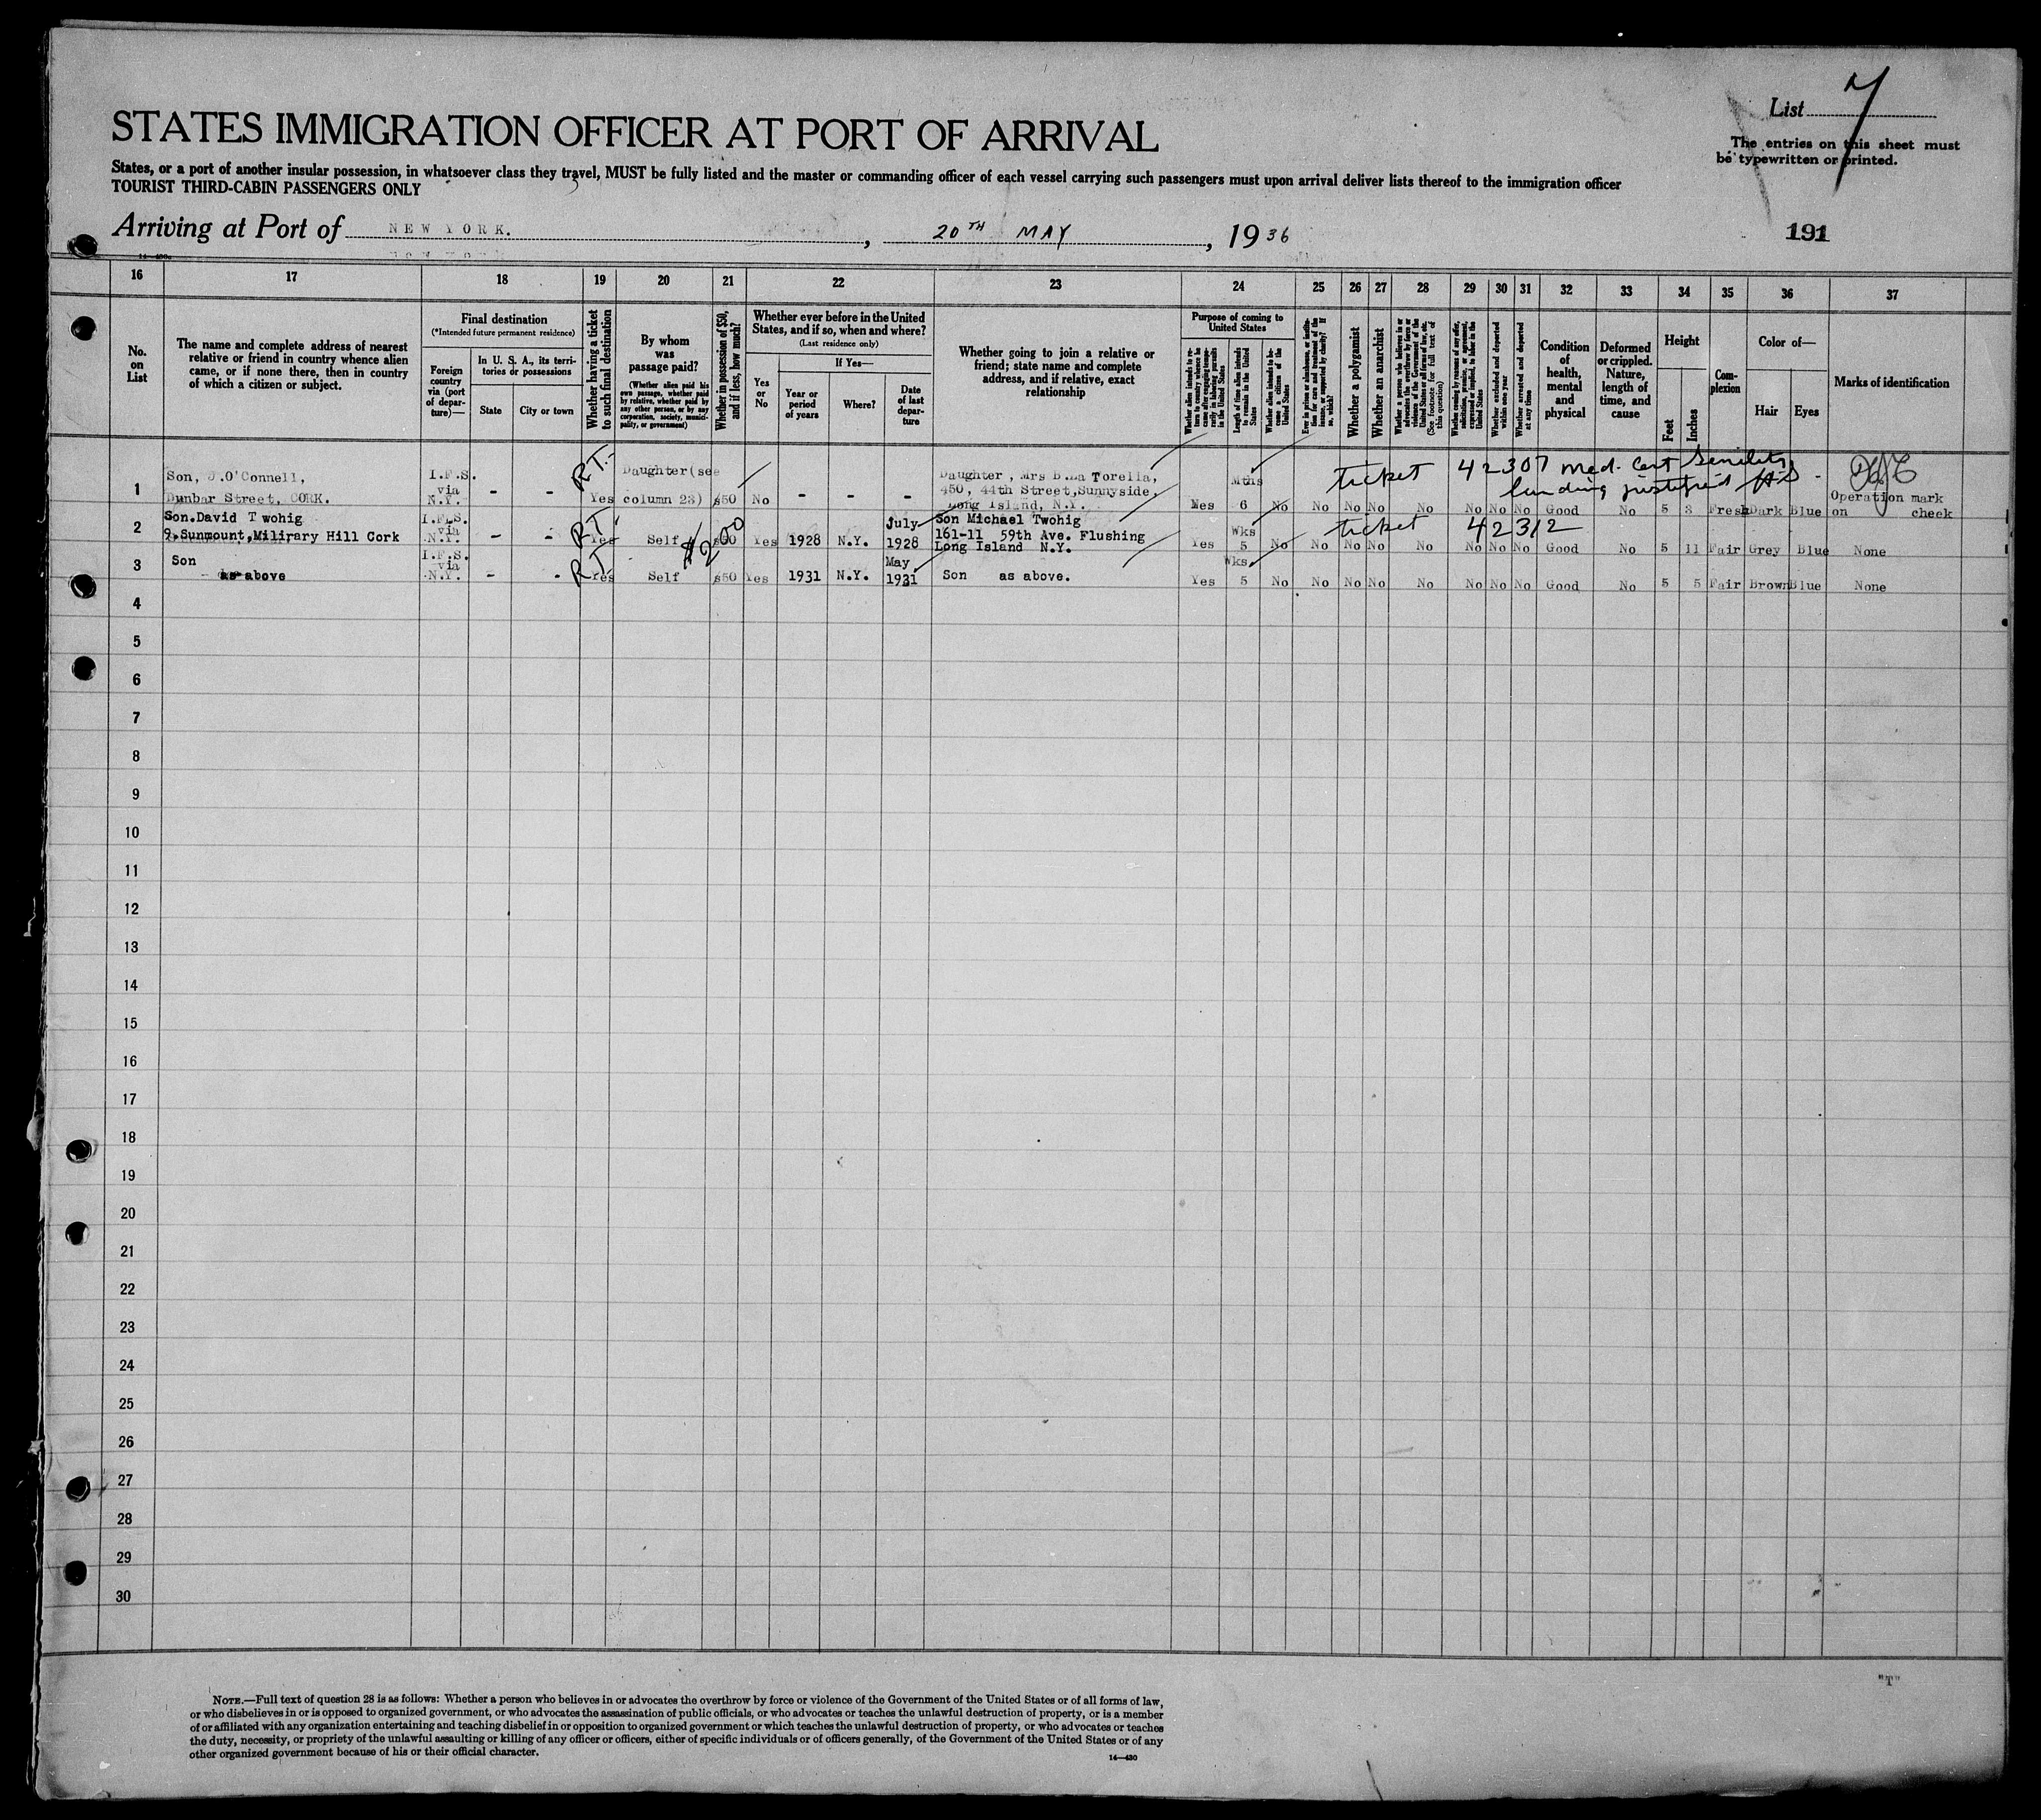 List 7
STATES IMMIGRATION OFFICER AT PORT OF ARRIVAL
The entries on this sheet must
be typewritten or printed.
States, or a port of another insular possession, in whatsoever class they travel, MUST be fully listed and the master or commanding officer of each vessel carrying such passengers must upon arrival deliver lists thereof to the immigration officer
TOURIST THIRD-CABIN PASSENGERS ONLY
Arriving at Port of NEW YORK. , 20TH MAY , 1936
191
16 17 18 19 20 21 22 23 24 25 26 27 28 29 30 31 32 33 34 35 36 37
No. on List
The name and complete address of nearest relative or friend in country whence alien came, or if none there, then in country of which a citizen or subject.
Final destination
(*Intended future permanent residence)
Foreign country via (port of departure)—
In U. S. A., its territories or possessions
State
City or town
Whether having a ticket to such final destination
By whom was passage paid?
(Whether alien paid his own passage, whether paid by relative, whether paid by any other person, or by any corporation, society, municipality, or government)
Whether in possession of $50, and if less, how much?
Whether ever before in the United States, and if so, when and where?
(Last residence only)
Yes or No
If Yes—
Year or period of years
Where?
Date of last departure
Whether going to join a relative or friend; state name and complete address, and if relative, exact relationship
Purpose of coming to United States
Whether alien intends to return to country whence he came after engaging temporarily in laboring pursuits in the United States
Length of time alien intends to remain in the United States
Whether alien intends to become a citizen of the United States
Ever in prison or almshouse, or institution for care and treatment of the insane, or supported by charity? If so, which?
Whether a polygamist
Whether an anarchist
Whether a person who believes in or advocates the overthrow by force or violence of the Government of the United States or all forms of law, etc. (See footnote for full text of this question)
Whether coming by reason of any offer, solicitation, promise, or agreement, expressed or implied, to labor in the United States
Whether excluded and deported within one year
Whether arrested and deported at any time
Condition of health, mental and physical
Deformed or crippled. Nature, length of time, and cause
Height
Feet
Inches
Complexion
Color of—
Hair
Eyes
Marks of identification
ticket 42307 med. Cert Senility
landing justified
1 Son, J.O'Connell, Dunbar Street, CORK. I.F.S. via N.Y. - - R.T. Yes Daughter(see column 23) $50 No - - - Daughter, Mrs B.La Torella, 450, 44th Street,Sunnyside, Long Island, N.Y. Yes Mths 6 No No No No No No No No Good No 5 3 Fresh Dark Blue Operation mark on cheek
ticket 42312
2 Son.David Twohig 9,Sunmount,Milirary Hill Cork I.F.S. via N.Y. - - R.T. Yes Self $200 Yes 1928 N.Y. July 1928 Son Michael Twohig 161-11 59th Ave. Flushing Long Island N.Y. Yes Wks 5 No No No No No No No No Good No 5 11 Fair Grey Blue None
3 Son as above I.F.S. via N.Y. - - R.T. Yes Self $50 Yes 1931 N.Y. May 1931 Son as above. Yes Wks 5 No No No No No No No No Good No 5 5 Fair Brown Blue None
4
5
6
7
8
9
10
11
12
13
14
15
16
17
18
19
20
21
22
23
24
25
26
27
28
29
30
"T"
NOTE.—Full text of question 28 is as follows: Whether a person who believes in or advocates the overthrow by force or violence of the Government of the United States or of all forms of law,
or who disbelieves in or is opposed to organized government, or who advocates the assassination of public officials, or who advocates or teaches the unlawful destruction of property, or is a member
of or affiliated with any organization entertaining and teaching disbelief in or opposition to organized government or which teaches the unlawful destruction of property, or who advocates or teaches
the duty, necessity, or propriety of the unlawful assaulting or killing of any officer or officers, either of specific individuals or of officers generally, of the Government of the United States or of any
other organized government because of his or their official character.
14—430